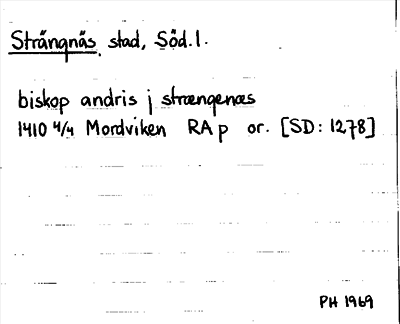 Strängnäs stad, Söd.l.
biskop andris j strængenæs
1410 4/4 Mordviken RA p or. [SD: 1278]
PH 1969